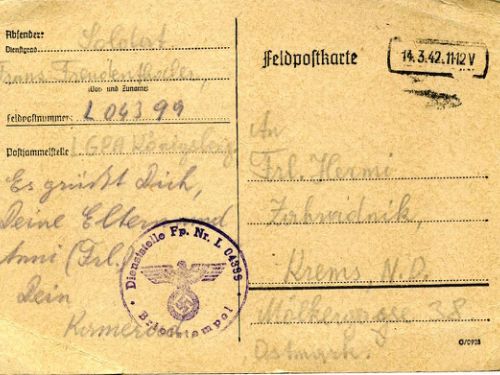 Absender:
Dienstgrad Soldat
Franz Freudenthaler,
(Vor- und Zuname)
Feldpostnummer: L 04399
Postsammelstelle LGPA Königsberg
Es grüßt Dich,
Deine Eltern und
Anni (Frl.)
Dein
Kamerad
Dienststelle Fp. Nr. L 04399
Briefstempel
Feldpostkarte
14.3.42.11-12 V
An
Frl. Hermi
Krems, N.D.
38
Ostmark.